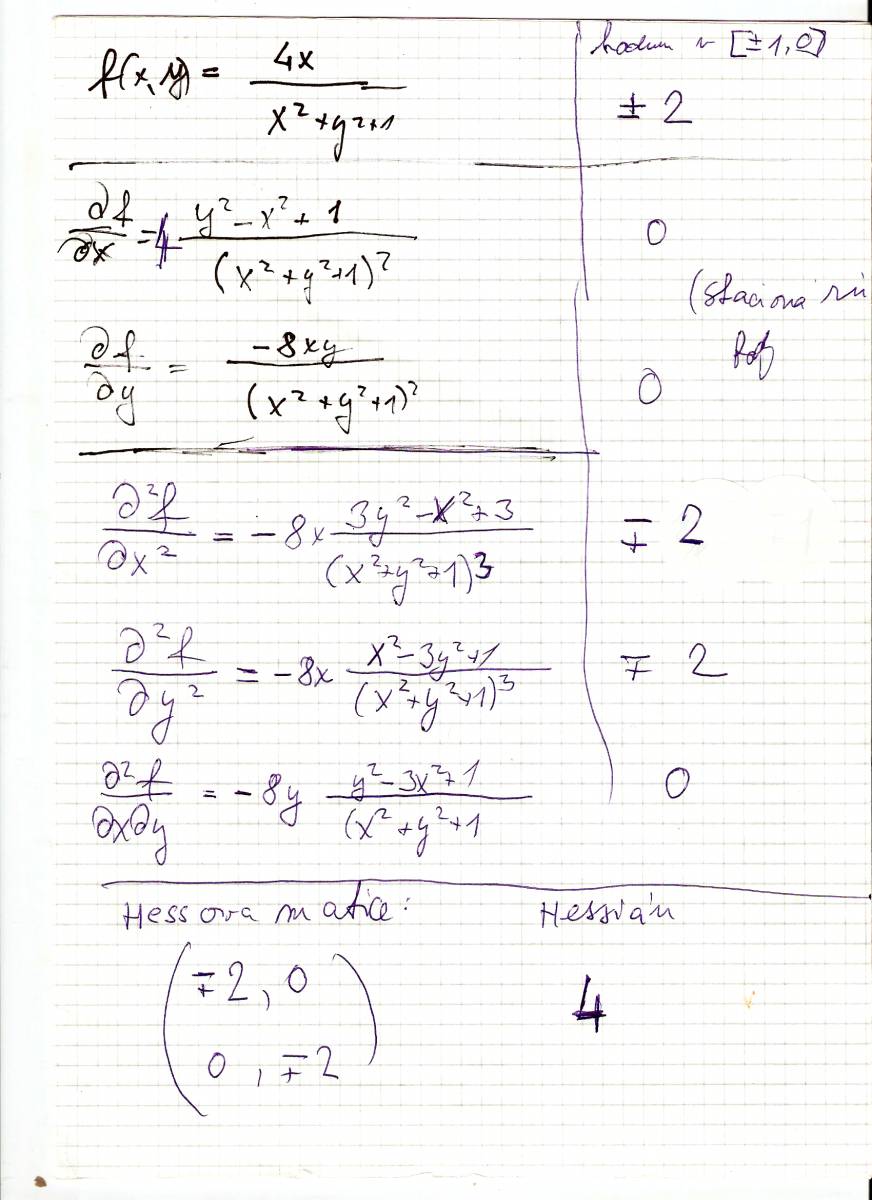 f(x,y) = 4x / x²+y²+1
v [±1,0]
±2
∂f/∂x = 4 y²-x²+1 / (x²+y²+1)²
0
(Stacionární
∂f/∂y = -8xy / (x²+y²+1)²
0
∂²f/∂x² = -8x 3y²-x²+3 / (x²+y²+1)3
∓2
∂²f/∂y² = -8x x²-3y²+1 / (x²+y²+1)³
∓2
∂²f/∂x∂y = -8y y²-3x²+1 / (x²+y²+1
0
Hessova matice: Hessián
(∓2, 0
0, ∓2)
4